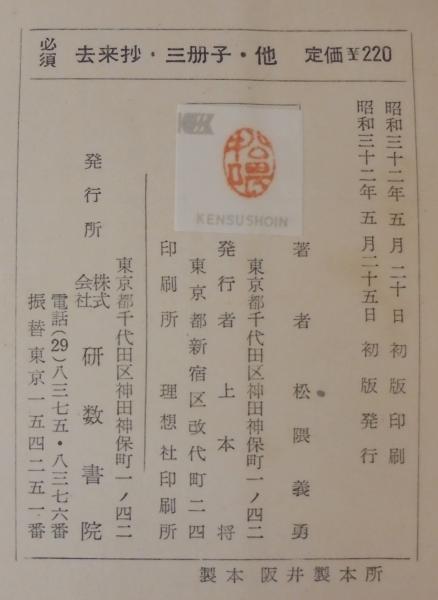 必須 去来抄・三册子・他 定価¥220
昭和三十二年五月二十日 初版印刷
昭和三十二年五月二十五日 初版発行
著者 松隈義勇
東京都千代田区神田神保町一ノ四二
発行者 上本将
東京都新宿区改代町二四
印刷所 理想社印刷所
KENSUSHOIN
松隈
東京都千代田区神田神保町一ノ四二
発行所 株式会社 研数書院
電話(29)八三七五・八三七六番
振替東京一五四二五一番
製本 阪井製本所